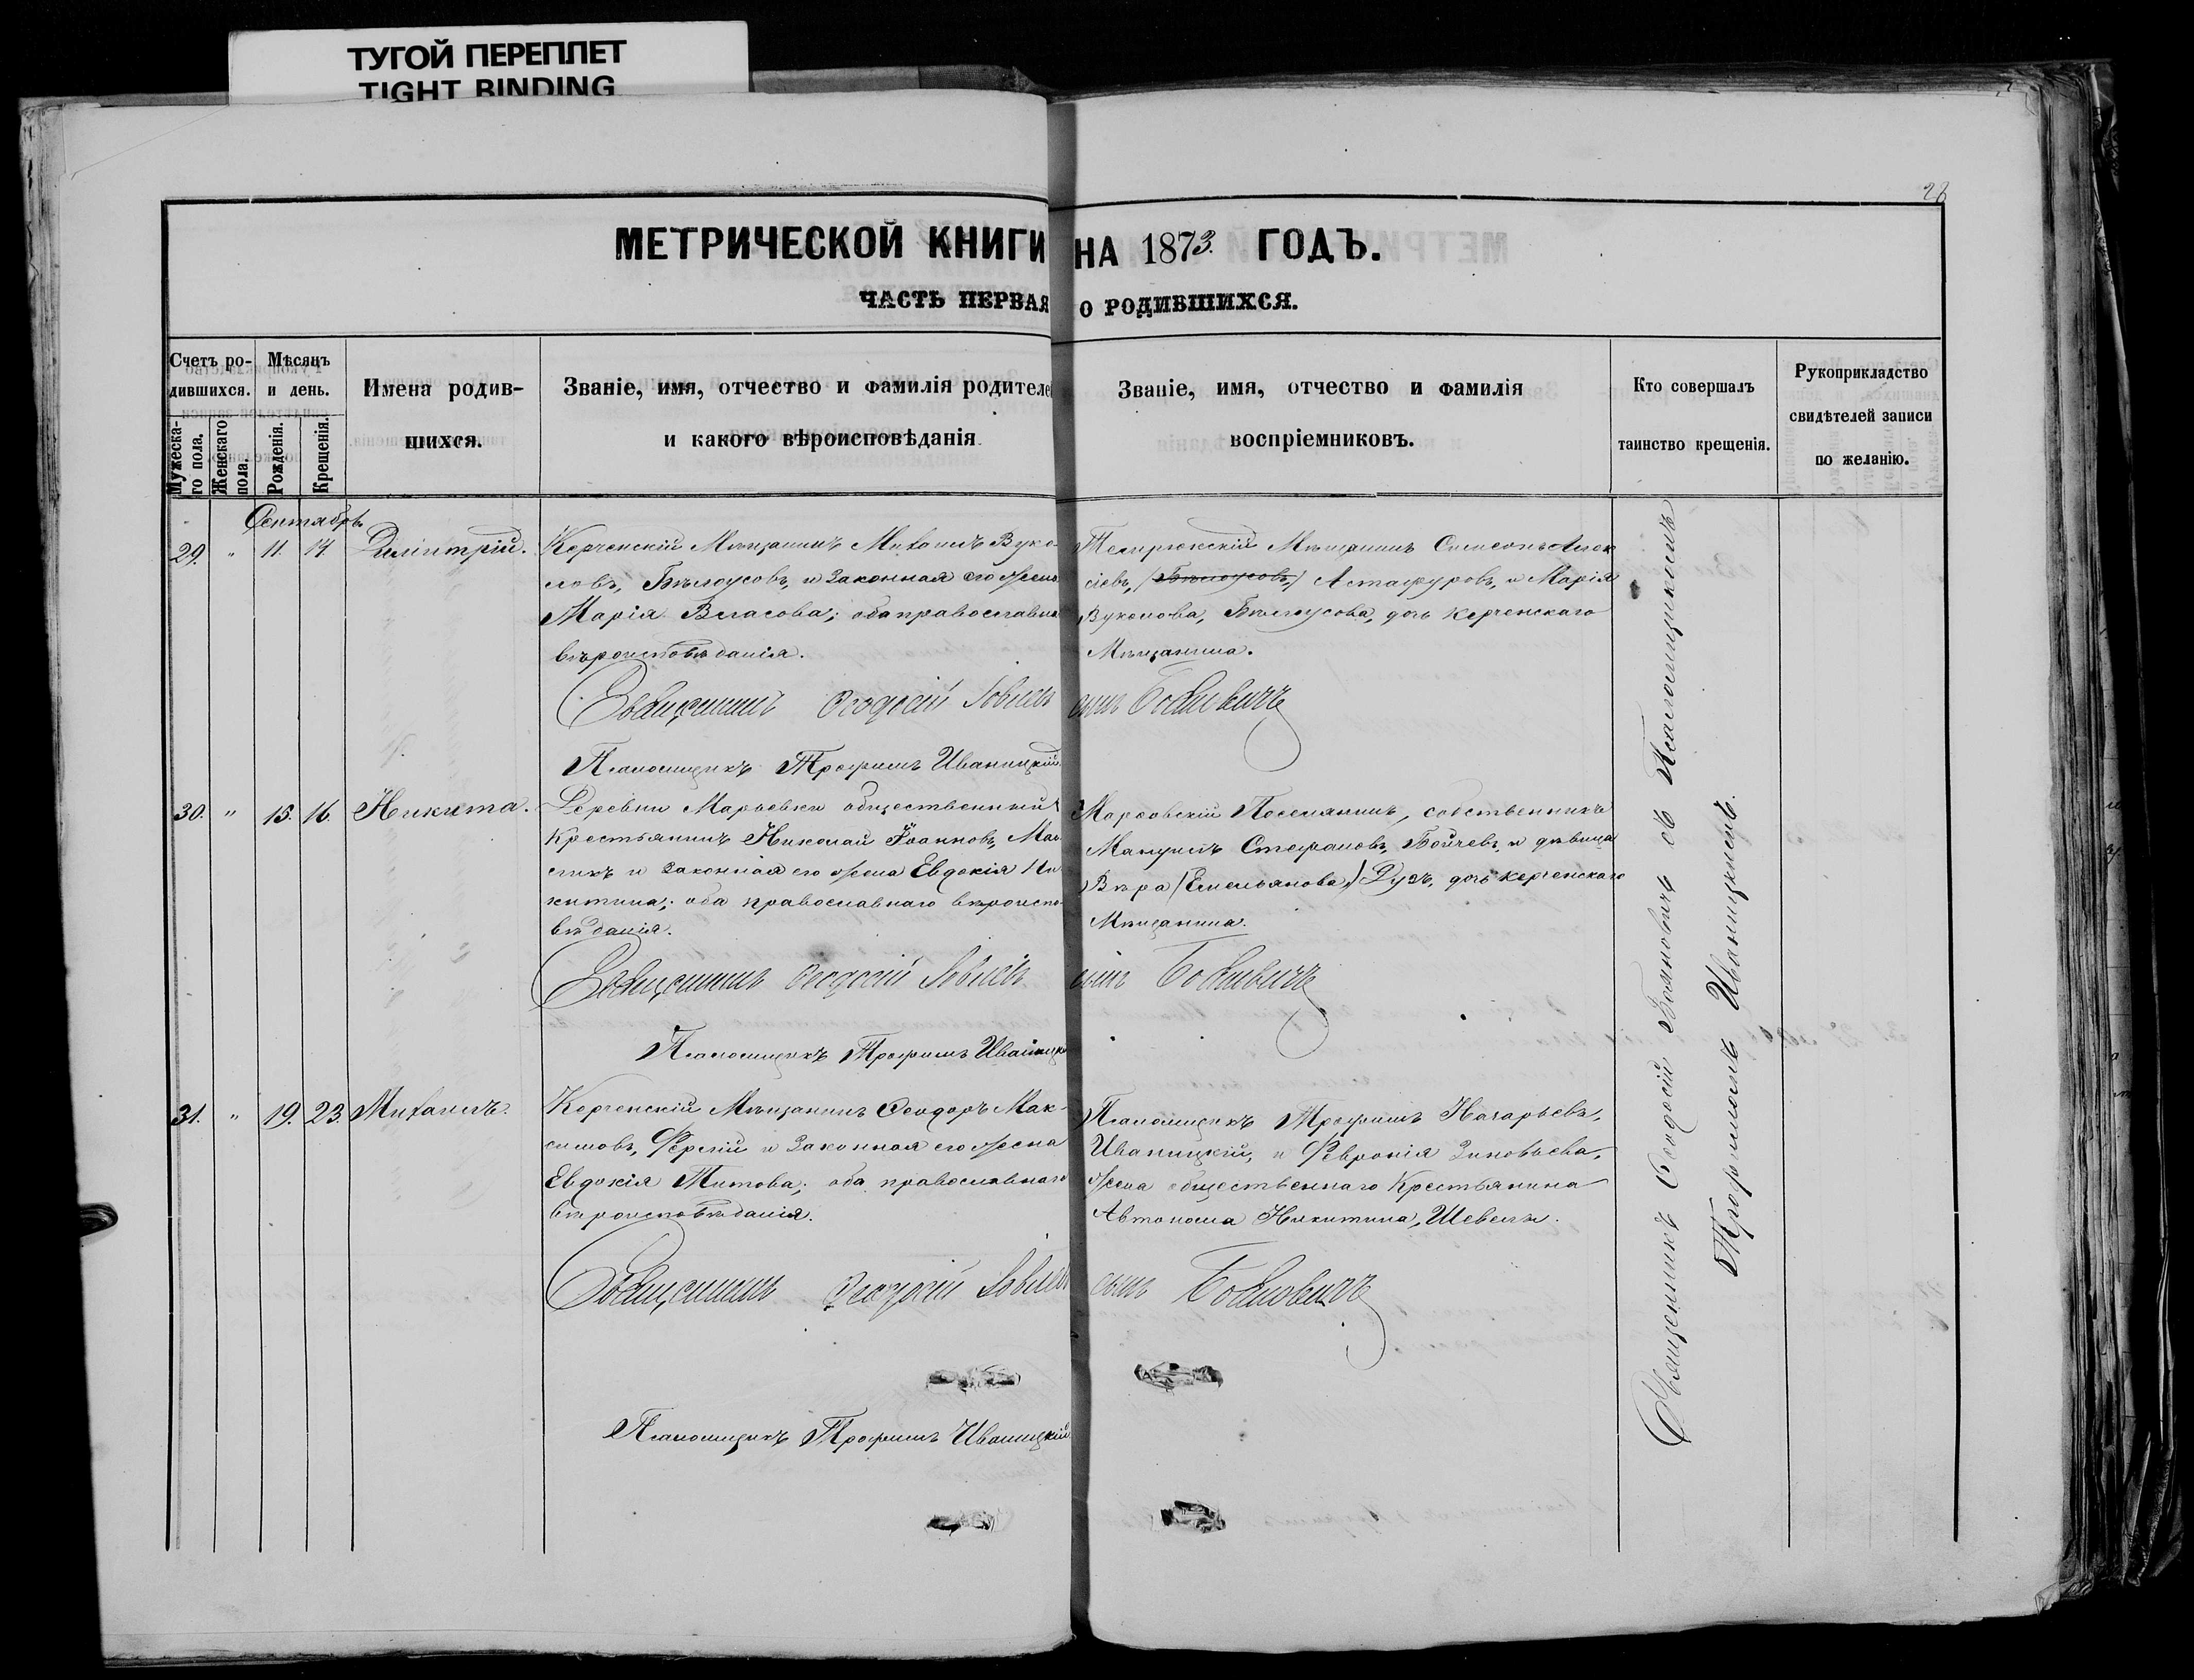 ТУГОЙ ПЕРЕПЛЕТ
TIGHT BINDING
28
МЕТРИЧЕСКОЙ КНИГИ НА 1873. ГОДЪ.
ЧАСТЬ ПЕРВАЯ О РОДИВШИХСЯ.
Счетъ родившихся.
Мужескаго пола.
Женскаго пола.
Мѣсяцъ и день.
Рожденія.
Крещенія.
Имена родившихся.
Званіе, имя, отчество и фамилія родителей
и какого вѣроисповѣданія
Званіе, имя, отчество и фамилія
воспріемниковъ.
Кто совершалъ
таинство крещенія.
Рукоприкладство
свидѣтелей записи
по желанію.
Сентябрь
29. " 11. 14. Димитрій.
Керченскій Мѣщанинъ Михаилъ Вуко-
ловъ, Бѣлоусовъ, и законная его жена
Марія Власова; оба православна
вѣроисповѣданія.
Темрюкскій Мѣщанинъ Симеонъ Алек
сіевъ, (Бѣлоусовъ,) Астафуровъ, и Марія
Вуколова, Бѣлоусова, дочь керченскаго
Мѣщанина.
Священникъ Ѳеодосій Іовлевъ сынъ Бояновичъ
Псаломщикъ Трофимъ Иваницкій.
30. " 15. 16. Никита.
Деревни Марьевки общественный
Крестьянинъ Николай Іоанновъ,
и законная его жена Евдокія Ни
китина; оба православнаго вѣроиспо-
вѣданія.
Поселянинъ, собственникъ
Мануилъ Стефановъ, Бойчевъ, и дѣвица
Вѣра (Емельянова,) дочь керченскаго
Мѣщанина.
Священникъ Ѳеодосій Іовлевъ сынъ Бояновичъ
Псаломщикъ Трофимъ Иваницкій
31. " 19. 23. Михаилъ.
Керченскій Мѣщанинъ Ѳеодоръ Мак-
симовъ, и законная его жена
Евдокія Титова; оба православнаго
вѣроисповѣданія.
Псаломщикъ Трофимъ Назарьевъ,
Иваницкій, и Февронія Зиновьева,
жена общественнаго Крестьянина
Автонома Никитина, Шевель.
Священникъ Ѳеодосій Іовлевъ сынъ Бояновичъ
Псаломщикъ Трофимъ Иваницкій
Священникъ Ѳеодосій Бояновичъ съ Псаломщикомъ
Трофимомъ Иваницкимъ.